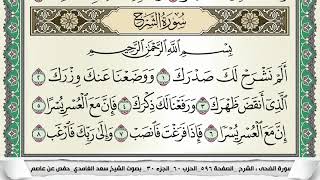 سورة الشرح
بِسْمِ اللَّهِ الرَّحْمَٰنِ الرَّحِيمِ
أَلَمْ نَشْرَحْ لَكَ صَدْرَكَ ١ وَوَضَعْنَا عَنكَ وِزْرَكَ ٢
الَّذِي أَنقَضَ ظَهْرَكَ ٣ وَرَفَعْنَا لَكَ ذِكْرَكَ ٤ فَإِنَّ مَعَ الْعُسْرِ يُسْرًا ٥
إِنَّ مَعَ الْعُسْرِ يُسْرًا ٦ فَإِذَا فَرَغْتَ فَانصَبْ ٧ وَإِلَىٰ رَبِّكَ فَارْغَب ٨
سورة الضحى ، الشرح الصفحة ٥٩٦ الحزب ٦٠ الجزء ٣٠ بصوت الشيخ سعد الغامدي حفص عن عاصم